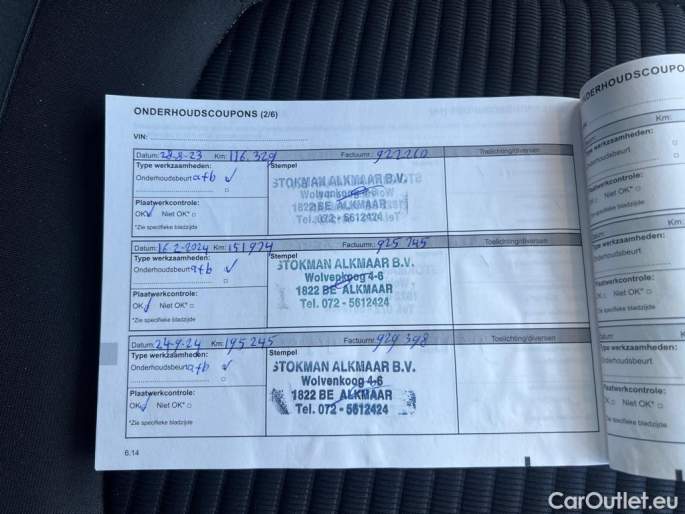 ONDERHOUDSCOUPONS (2/6)
VIN:
Datum: 28-8-23 Km: 116.329 Factuurnr.: 922260 Toelichting/diversen
Type werkzaamheden: Stempel
Onderhoudsbeurt a+b ✓
STOKMAN ALKMAAR B.V.
Wolvenkoog 4-6
1822 BE ALKMAAR
Tel. 072 - 5612424
Plaatwerkcontrole:
OK Niet OK*
*Zie specifieke bladzijde
Datum: 16-2-2024 Km: 151974 Factuurnr.: 925 745 Toelichting/diversen
Type werkzaamheden: Stempel
Onderhoudsbeurt a+b ✓
STOKMAN ALKMAAR B.V.
Wolvenkoog 4-6
1822 BE ALKMAAR
Tel. 072 - 5612424
Plaatwerkcontrole:
OK Niet OK*
*Zie specifieke bladzijde
Datum: 24-9-24 Km: 195245 Factuurnr.: 929 398 Toelichting/diversen
Type werkzaamheden: Stempel
Onderhoudsbeurt a+b ✓
STOKMAN ALKMAAR B.V.
Wolvenkoog 4-6
1822 BE ALKMAAR
Tel. 072 - 5612424
Plaatwerkcontrole:
OK Niet OK*
*Zie specifieke bladzijde
6.14
NDERHOUDSCOUPO
Km:
werkzaamheden:
nderhoudsbeurt
aatwerkcontrole:
Niet OK*
specifieke bladzijde
Km:
pe werkzaamheden:
nderhoudsbeurt
Plaatwerkcontrole:
OK Niet OK*
*Zie specifieke bladzijde
Km:
Type werkzaamheden:
Onderhoudsbeurt
Plaatwerkcontrole:
OK Niet OK*
*Zie specifieke bladzijde
CarOutlet.eu